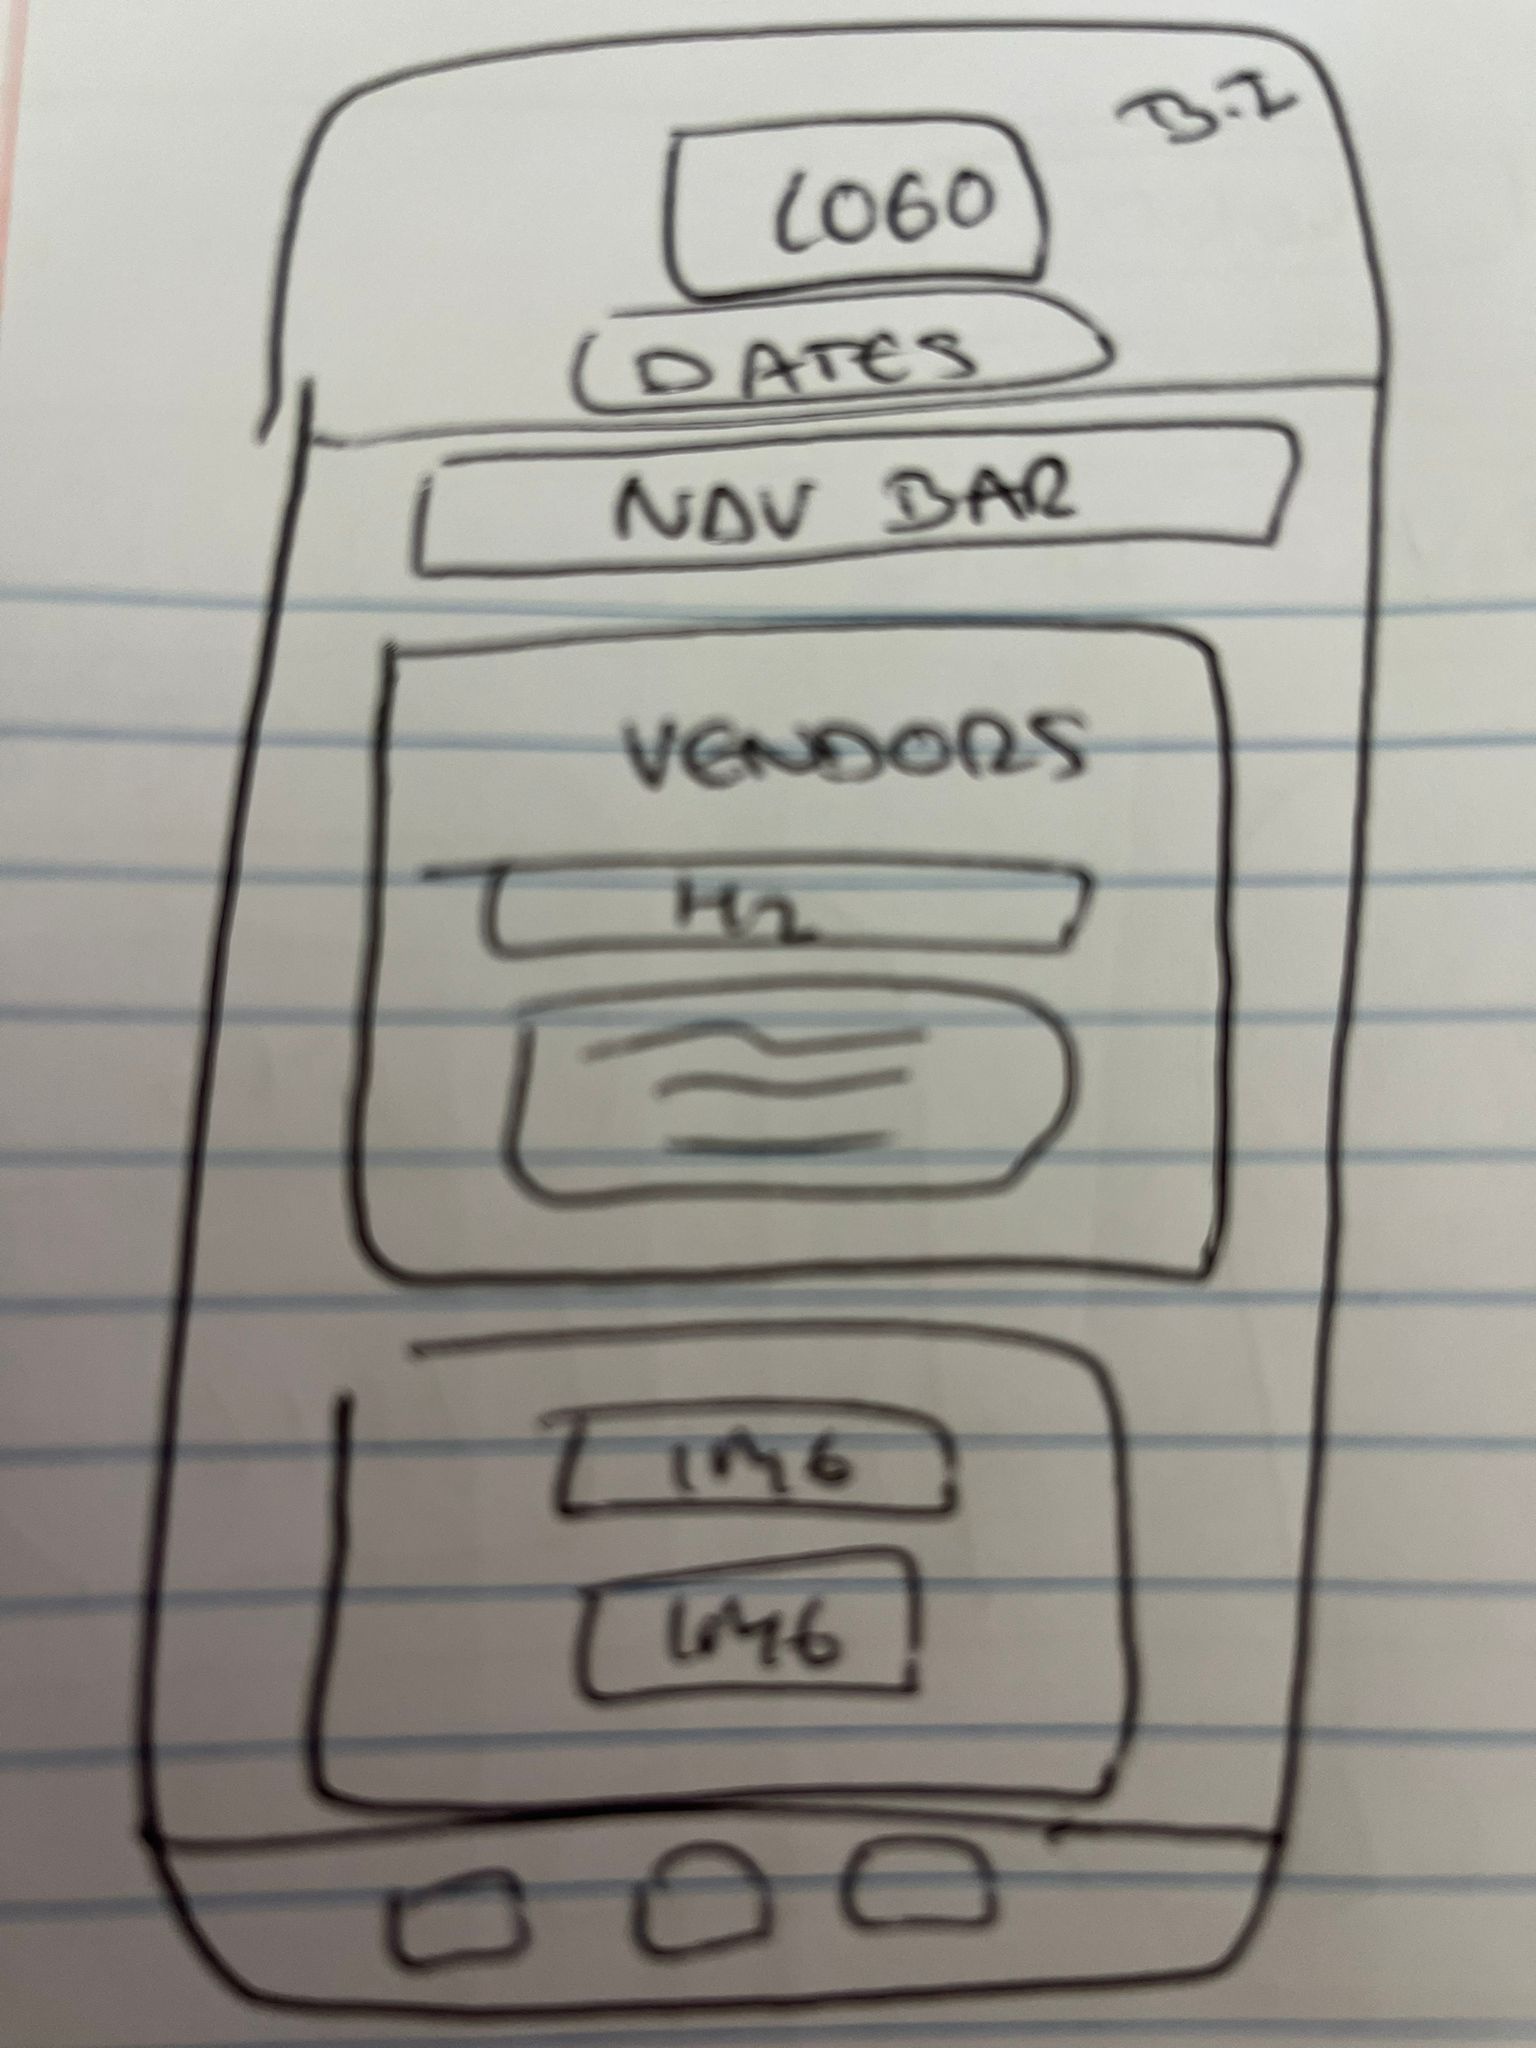 B.I
LOGO
DATES
NAV BAR
VENDORS
H2
IMG
IMG